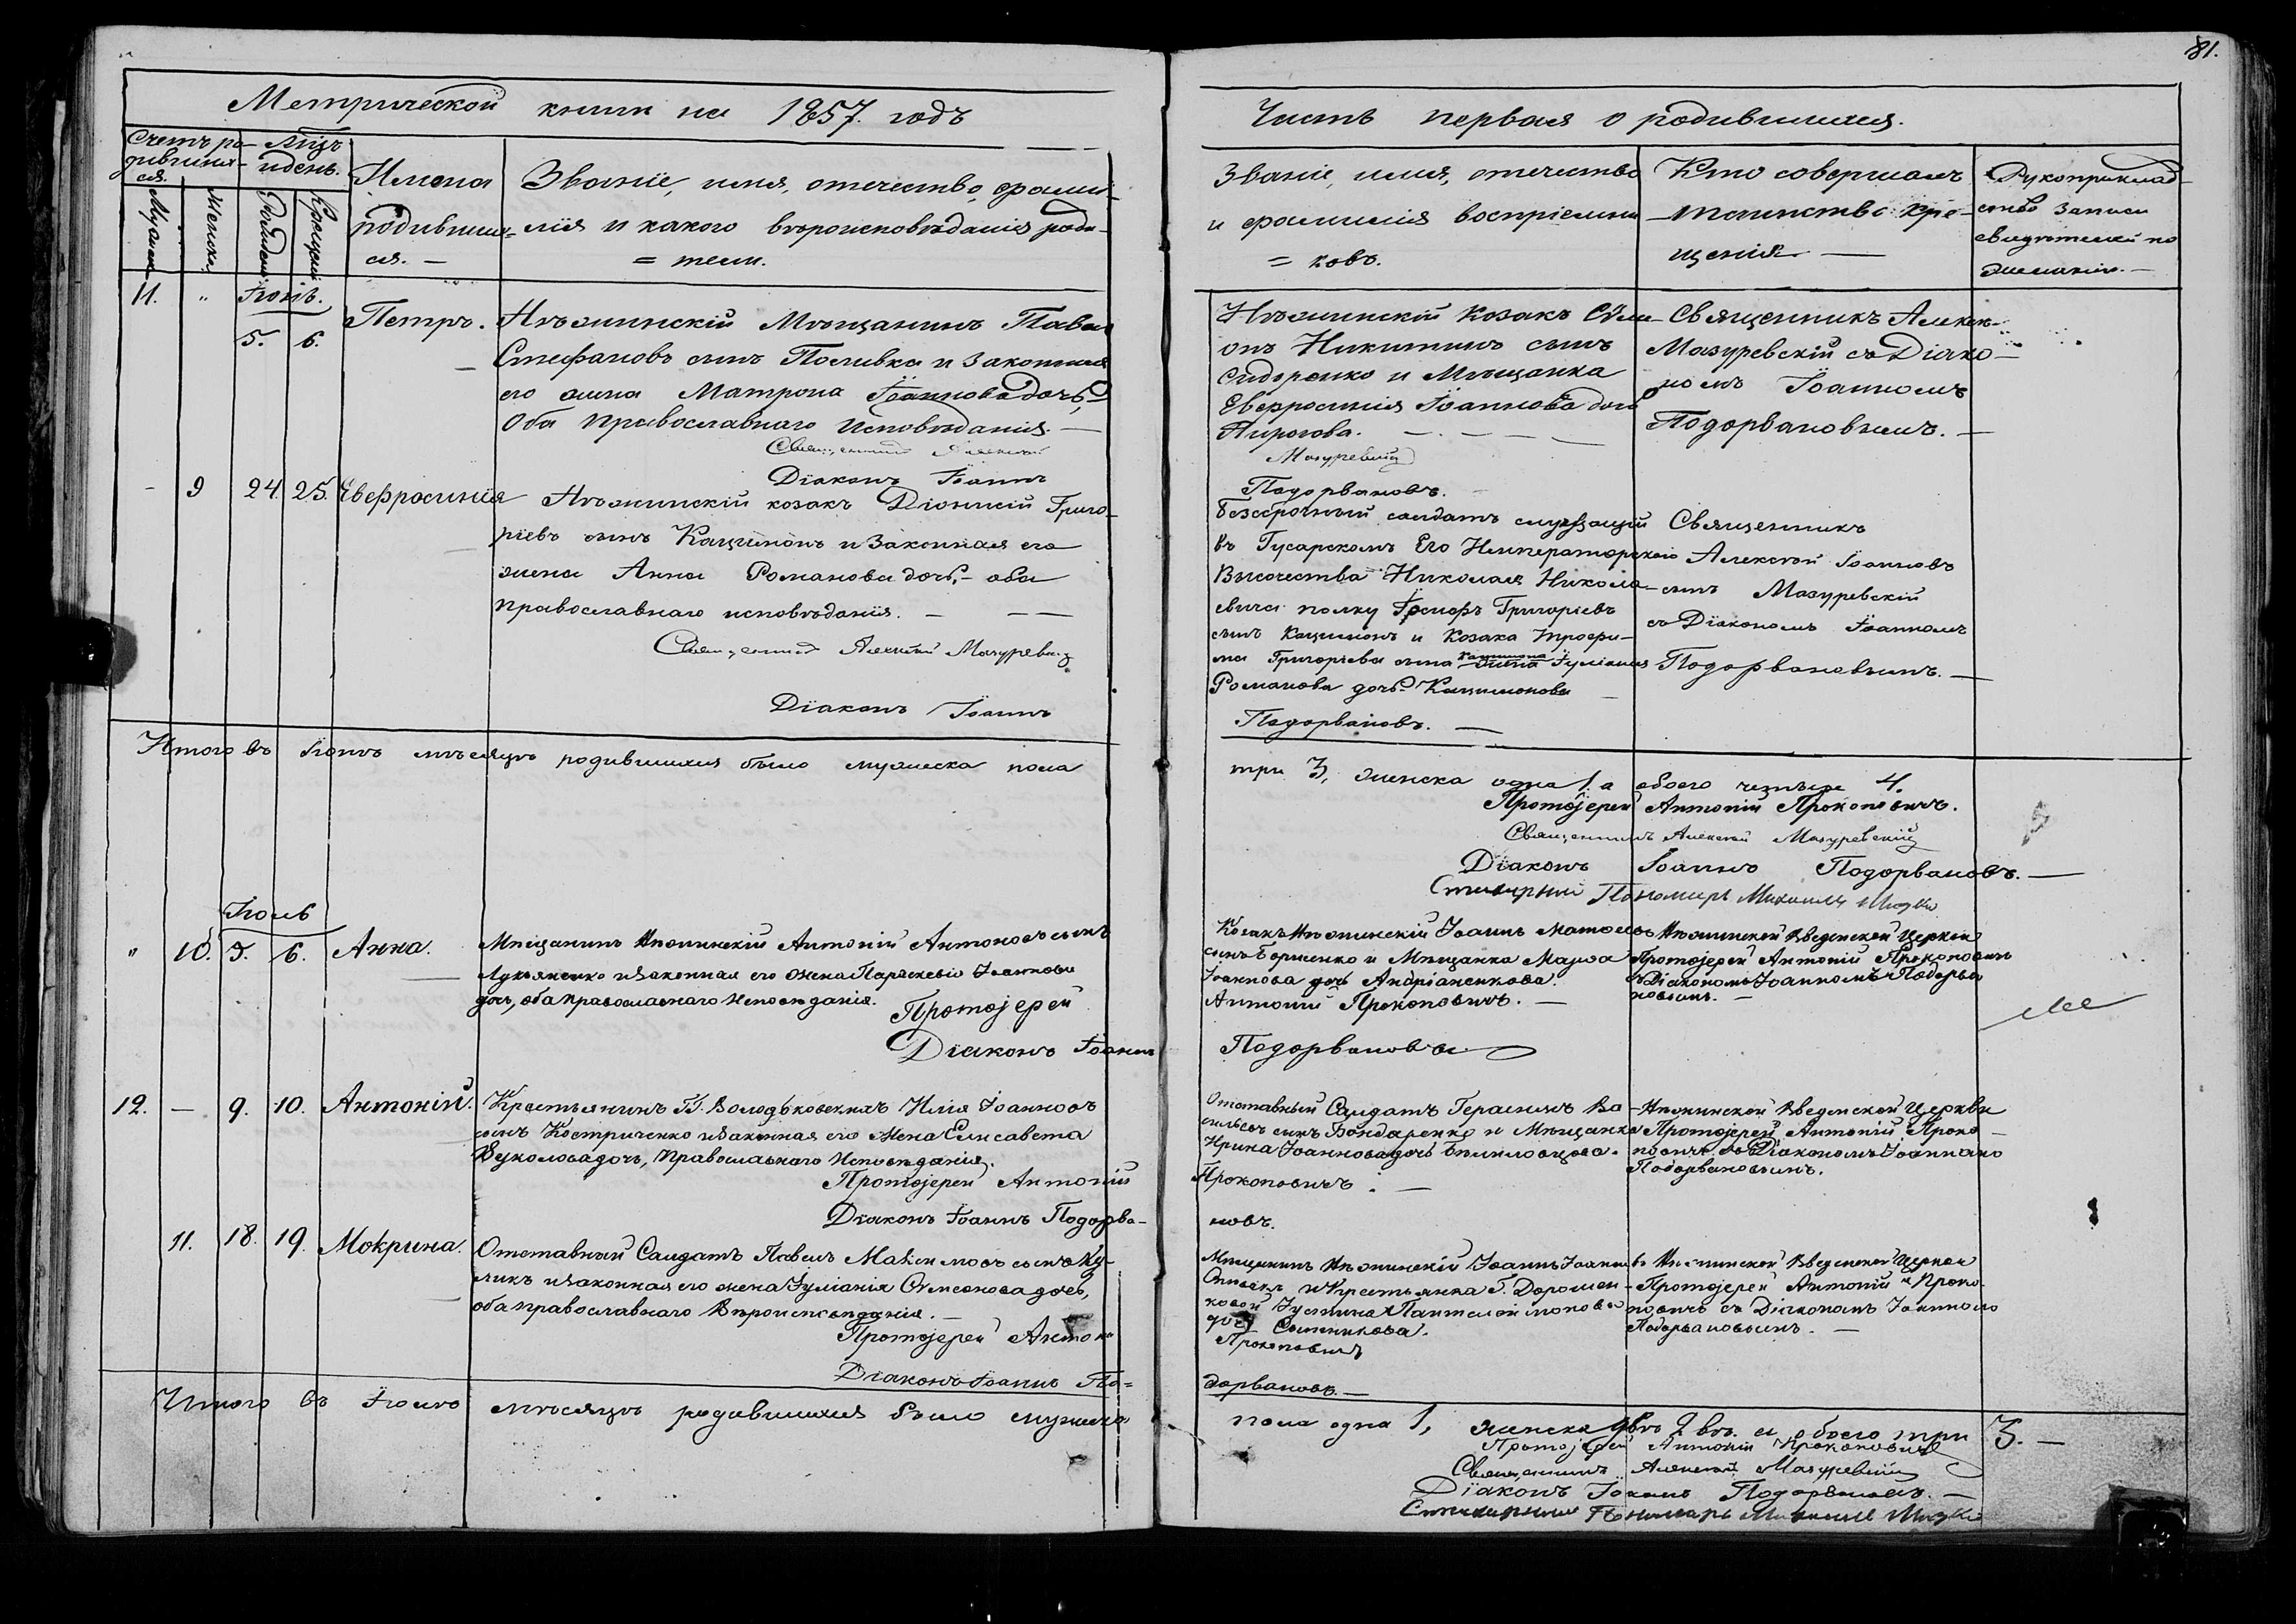 81.
Метрической книги на 1857. годъ
Счетъ ро-
дивших-
ся.
Мѣсяцъ
и день.
Мужеска
Женска.
Рожденія
Крещенія
Имена
родивших=
ся. —
Званіе, имя, отечество, фами-
лія и какого вѣроисповѣданія роди-
= тели.
11. " Іюнь.
5. 6. Петръ.
Нѣжинскій Мѣщанинъ Павелъ
Стефановъ сынъ Поливка и законная
его жена Матрона Іоаннова дочь,
Оба Православнаго Исповѣданія. —
Священникъ Алексѣй
Діаконъ Іоаннъ
- 9 24. 25. Евфросинія
Нѣжинскій козакъ Діонисій Григо-
ріевъ сынъ Кацимонъ и Законная его
жена Анна Романова дочь, - оба
Православнаго исповѣданія. —
Священникъ Алексѣй Мазуревскій
Діаконъ Іоаннъ
Итого въ Іюнѣ мѣсяцѣ родившихся было мужеска пола
Іюль
" 10. 5. 6. Анна.
Мѣщанинъ Нѣжинскій Антоній Антоновъ сынъ
Лукьяненко и Законная его Жена Параскевія Іоаннова
дочь, оба православнаго Исповѣданія.
Протоіерей
Діаконъ Іоаннъ
12. — 9. 10. Антоній.
Крестьянинъ Г. Володьковскихъ Илія Іоанновъ
сынъ Костриченко и Законная его Жена Елисавета
Вуколова дочь, Православнаго Исповѣданія.
Протоіерей Антоній
Діаконъ Іоаннъ Подорва-
11. 18. 19. Мокрина.
Отставный Салдатъ Павелъ Максимовъ сынъ Ку-
ликъ и Законная его жена Іуліанія Сѵмеонова дочь,
оба православнаго Вѣроисповѣданія. —
Протоіерей Антоній
Діаконъ Іоаннъ По=
Итого въ Іюлѣ мѣсяцѣ родившихся было мужеска
Часть первая о родившихся.
Званіе, имя, отечество
и фамилія воспріемни
= ковъ.
Кто совершалъ
таинство кре-
щенія —
Рукоприклад-
ство записи
свидѣтелей по
желанію. —
Нѣжинскій Козакъ Сѵме-
онъ Никитинъ сынъ
Сидоренко и Мѣщанка
Евфросинія Іоаннова дочь
Пирогова.
Мазуревскій
Подорвановъ.
Священникъ Алексѣй
Мазуревскій съ Діако-
номъ Іоанномъ
Подорвановымъ. —
Безсрочный салдатъ служащій
въ Гусарскомъ Его Императорскаго
Высочества Николая Никола-
евича полку Іосифъ Григоріевъ
сынъ Кацимонъ и Козака Трофи-
ма Григорьева сына Кацимона жена Іуліанія
Романова дочь Кацимонова
Подорвановъ. —
Священникъ
Алексѣй Іоанновъ
сынъ Мазуревскій
съ Діакономъ Іоанномъ
Подорвановымъ. —
три 3, женска одна 1. а обоего четыре 4.
Протоіерей Антоній Прокоповичъ.
Священникъ Алексѣй Мазуревскій
Діаконъ Іоаннъ Подорвановъ. —
Стихарный Пономарь Михаилъ
Козакъ Нѣжинскій Іоаннъ
сынъ Борисенко и Мѣщанка
Іоаннова дочь Андріаненкова.
Антоній Прокоповичъ. —
Подорвановъ
Нѣжинской Введенской Церкви
Протоіерей Антоній Прокоповичъ
съ Діакономъ Іоанномъ Подорва
новымъ. —
Отставный Салдатъ Герасимъ Ва-
сильевъ сынъ Бондаренко и Мѣщанка
Ирина Іоаннова дочь
Прокоповичъ. —
новъ.
Нѣжинской Введенской Церкви
Протоіерей Антоній Проко-
повичъ съ Діакономъ Іоанномъ
Подорвановымъ.
Мѣщанинъ Нѣжинскій Іоаннъ Іоанновъ
и Крестьянка Г. Дорошен-
ковой Іустина Пантелеймонова
дочь Сытникова.
Прокоповичъ
дорвановъ. —
Нѣжинской Введенской Церкви
Протоіерей Антоній Проко-
повичъ съ Діакономъ Іоанномъ
Подорвановымъ. —
пола одна 1, женска двѣ 2. а обоего три 3. —
Протоіерей Антоній Прокоповичъ
Священникъ Алексѣй Мазуревскій
Діаконъ Іоаннъ Подорвановъ. —
Стихарный Пономарь Михаилъ